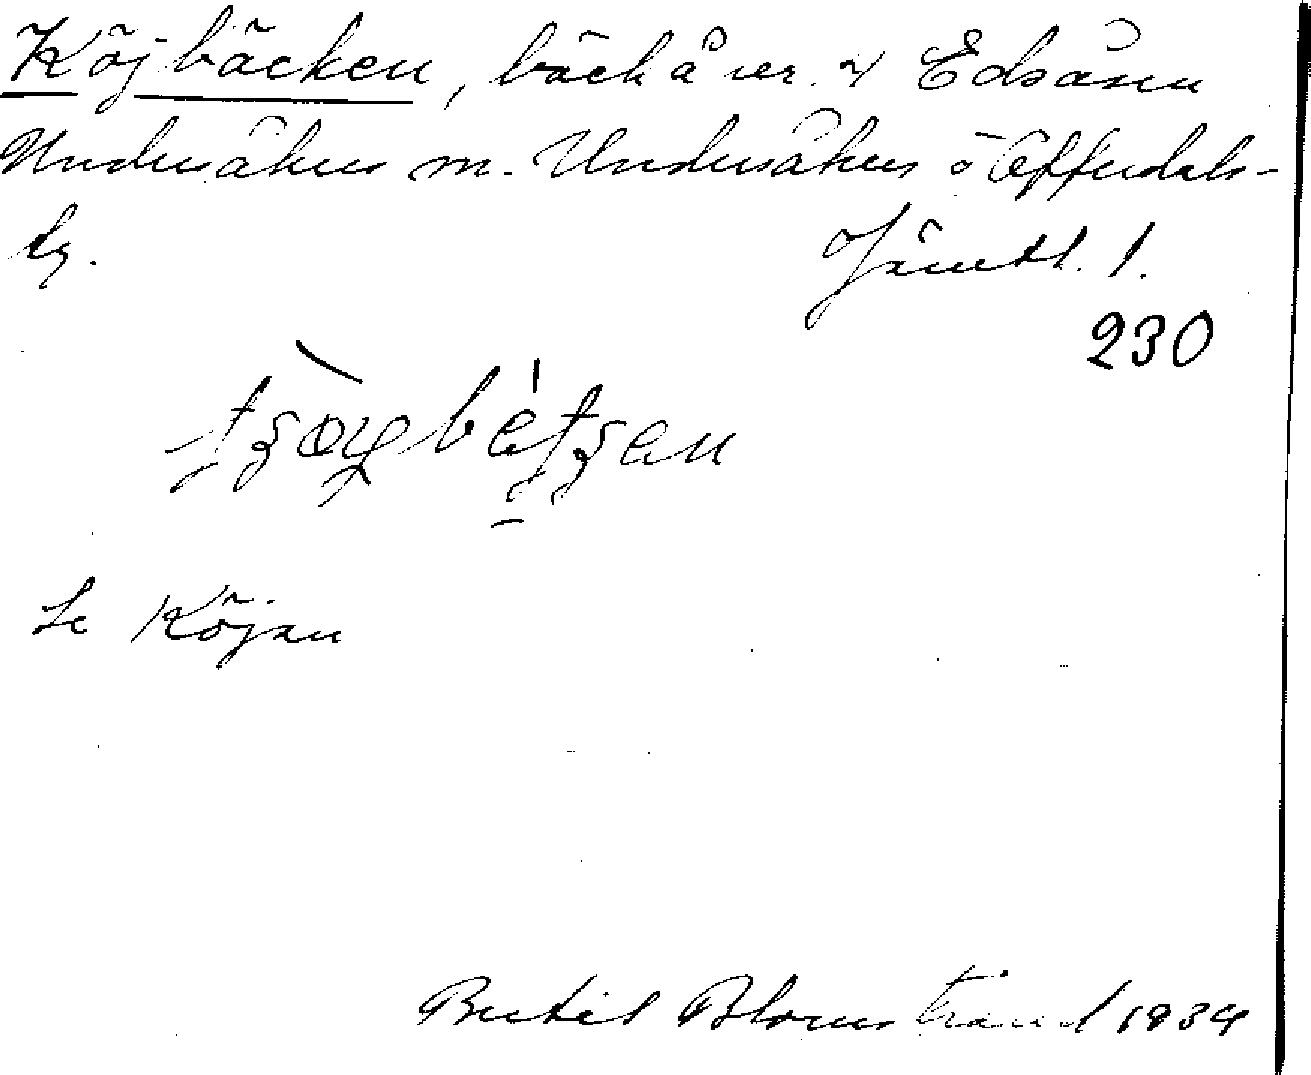 Köjbäcken, bäck å ver. v Edsåsen
Undersåkers sn. Undersåkers o Offerdals-
tg. Jämtl. l.
230
Se Köjan
Bertil Blomstrand 1934